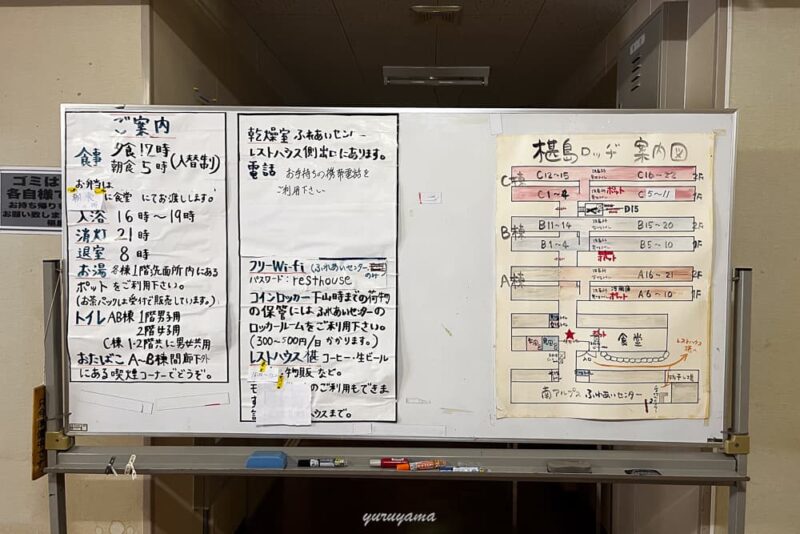 ゴミは
各自様で
お持ち帰り
お願い致しま
ご案内
食事 夕食17時
朝食5時 (入替制)
お弁当は
に食堂にてお渡しします。
入浴 16時〜19時
消灯 21時
退室 8時
お湯 各棟1階洗面所内にある
ポットをご利用下さい。
(お茶パックは受付で販売しています。)
トイレ AB棟 1階男子用
2階女子用
C棟 1・2階共に男女共用
おたばこ A〜B棟間廊下外
にある喫煙コーナーでどうぞ。
乾燥室 ふれあいセンター
レストハウス側出口にあります。
電話 お手持ちの携帯電話を
ご利用下さい
フリーWi-fi (ふれあいセンター
のみ)
パスワード: resthouse
コインロッカー 下山時までの荷物
の保管にはふれあいセンターの
ロッカールームをご利用下さい。
(300〜500円/日 かかります。)
レストハウス椹 コーヒー・生ビール
物販など。
のご利用もできま
す
ハウスまで。
椹島ロッヂ 案内図
C棟 C12〜15 C16〜22 2F
C1〜4 ポット C5〜11 1F
D15
B棟 B11〜14 B15〜20 2F
B1〜4 B5〜10 1F
ポット
A棟 A16〜21 2F
ポット A6〜10 1F
食堂
レストハウス
椹へ
南アルプスふれあいセンター
yuruyama